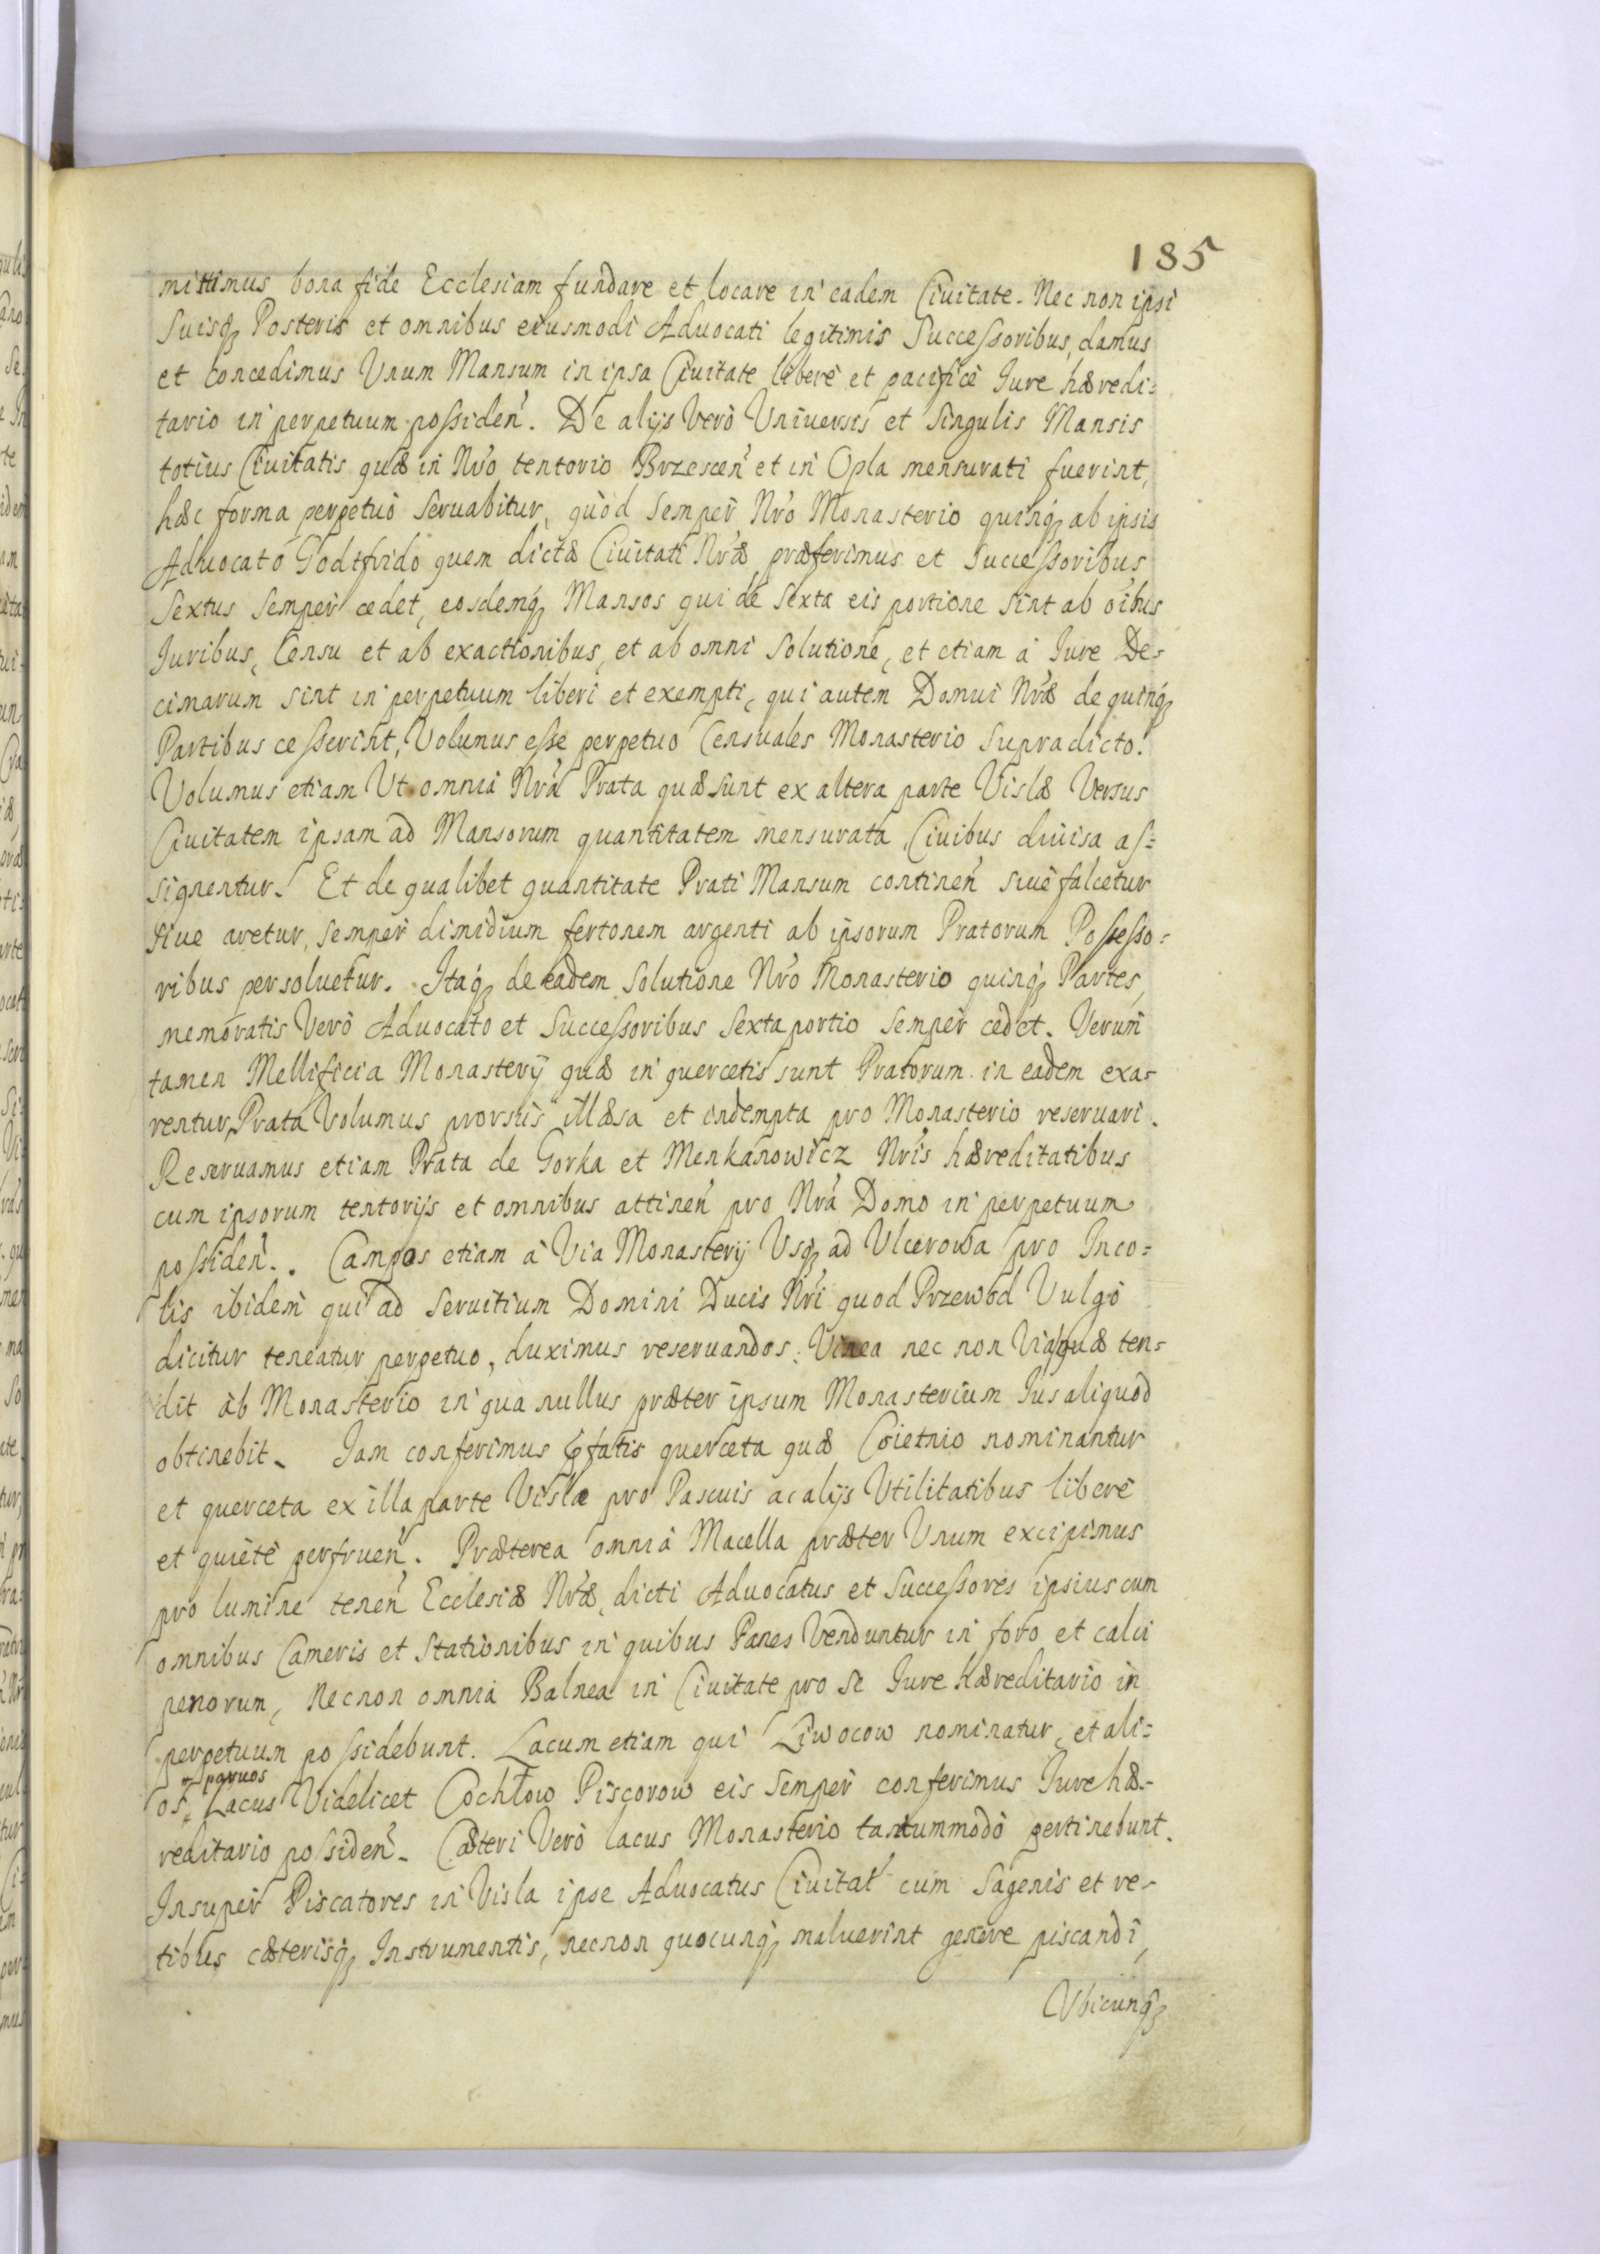 185
mittimus bona fide Ecclesiam fundare et locare in eadem Ciuitate. Nec non ipsi
Suisq́ Posteris et omnibus eiusmodi Aduocati legitimis Successoribus, damus
et concedimus Vnum Mansum in ipsa Ciuitate liberè et pacificè Iure hæredi:
tario in perpetuum possideń. De alijs Verò Vniuersis et Singulis Mansis
totius Ciuitatis quæ in Nŕo tentorio Brzesceń et in Opla mensurati fuerint,
hæc forma perpetuò Seruabitur, quòd Semper Nŕo Monasterio quinq́ ab ipsis
Aduocato Godifrido quem dictæ Ciuitati Nŕæ præferimus et Successoribus
Sextus Semper cedet, eosdemq́ Mansos qui de Sexta eis portione Sint ab oi͠bus
Iuribus, Censu et ab exactionibus, et ab omni Solutione, et etiam à Iure De-
cimarum sint in perpetuum liberi et exempti, qui autem Domui Nŕæ de quinq́
Partibus cesserint, Volumus esse perpetuo Censuales Monasterio Supradicto.
Volumus etiam Vt omnia Nŕa Prata quæ sunt ex altera parte Vislæ Versus
Ciuitatem ipsam ad Mansorum quantitatem mensurata, Ciuibus diuisa as:
signentur. Et de qualibet quantitate Prati Mansum contineń siue falcetur
siue aretur, Semper dimidium fertonem argenti ab ipsorum Pratorum Possesso:
ribus persoluetur. Itaq́ de eadem Solutione Nŕo Monasterio quinq́ Partes,
memoratis Verò Aduocato et Successoribus Sexta portio Semper cedet. Verum
tamen Mellificia Monasterij quæ in quercetis sunt Pratorum in eadem exa-
rentur Prata Volumus prorsus illæsa et indempta pro Monasterio reseruari.
Reseruamus etiam Prata de Gorka et Menkanowicz Nŕis hæreditatibus
cum ipsorum tentorijs et omnibus attineń pro Nŕa Domo in perpetuum
possideń. Campos etiam à Via Monasterij Vsq́ ad Vlcerowa pro Inco:
lis ibidem qui ad Seruitium Domini Ducis Nŕi quod Przewod Vulgò
dicitur teneatur perpetuo, duximus reseruandos: Vinea nec non Via quæ ten-
dit ab Monasterio in qua nullus præter ipsum Monasterium Ius aliquod
obtinebit. Iam conferimus p̱fatis querceta quæ Csietnio nominantur
et querceta ex illa parte Vislæ pro Pascuis ac alijs Vtilitatibus liberè
et quietè perfrueń. Præterea omnia Macella præter Vnum excipimus
pro lumine teneń Ecclesiæ Nŕæ, dicti Aduocatus et Successores ipsius cum
omnibus Cameris et Stationibus in quibus Panes Venduntur in foro et calci
penorum, Necnon omnia Balnea in Ciuitate pro Se Iure hæreditario in
perpetuum possidebunt. Lacum etiam qui Liwocow nominatur, et ali:
os paruos Lacus Videlicet Cochłow Piscorow eis Semper conferimus Iure hæ-
reditario possideń. Cæteri Verò lacus Monasterio tantummodò pertinebunt.
Insuper Piscatores in Visla ipse Aduocatus Ciuitat́ cum Sagenis et re-
tibus cæterisq́ Instrumentis, necnon quocunq́ maluerint genere piscandi,
Vbicunq́